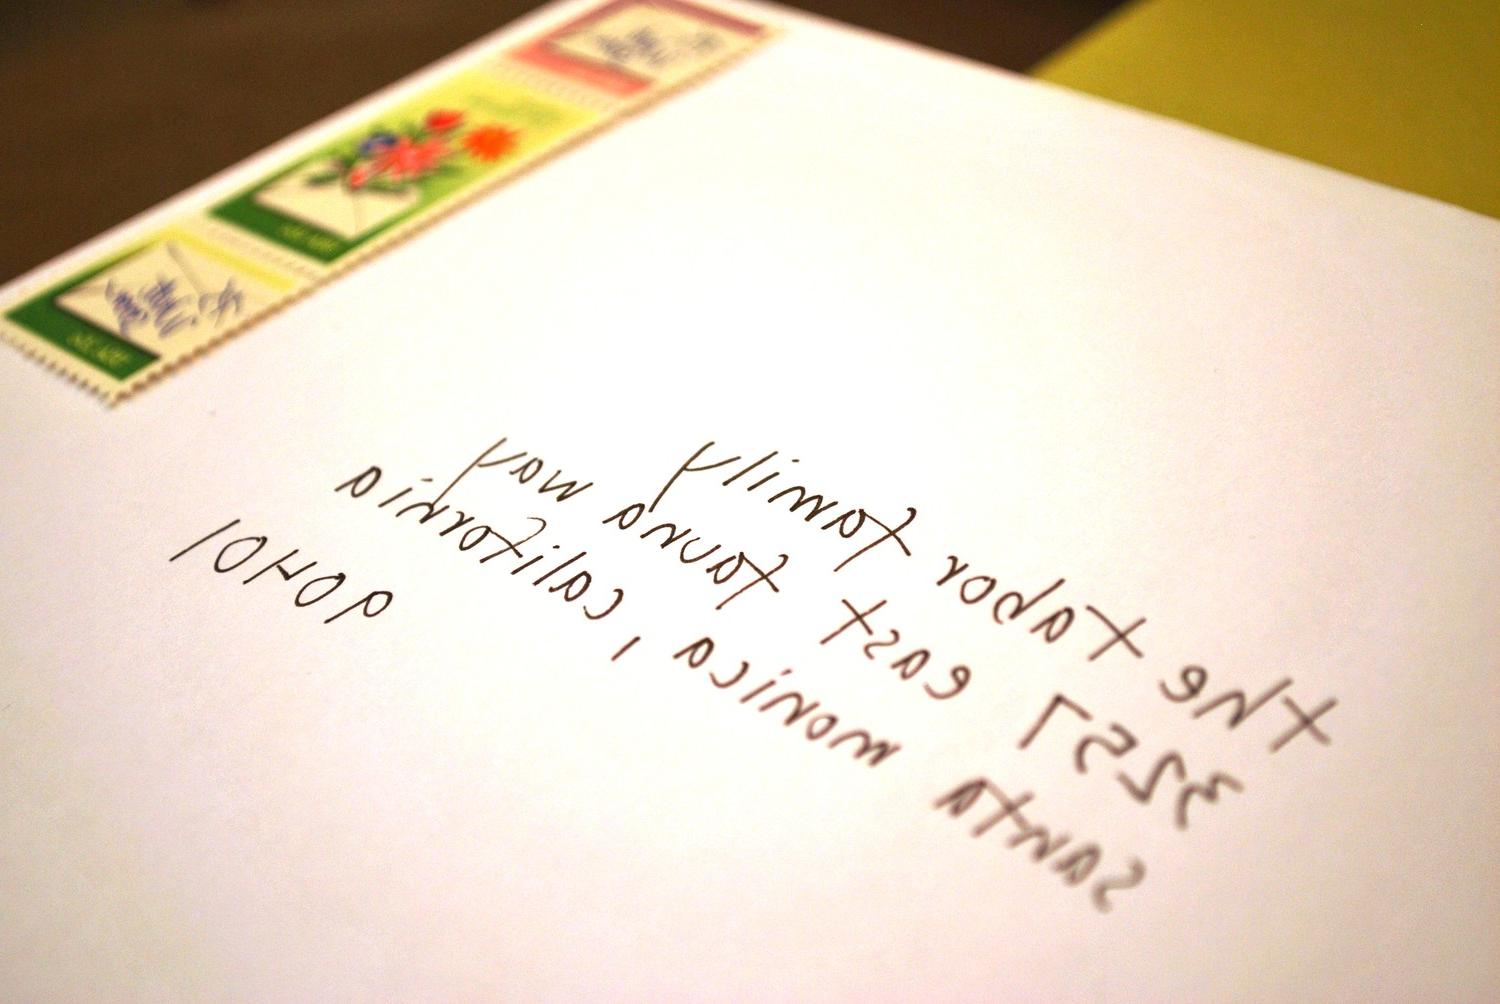 the tabor family
3257 east fauna way
santa monica, california
90401